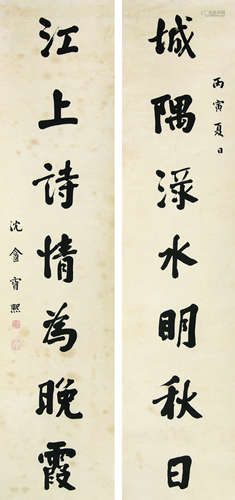 丙寅夏日
城隅淥水明秋日
江上詩情為晚霞
沈盦寶熙